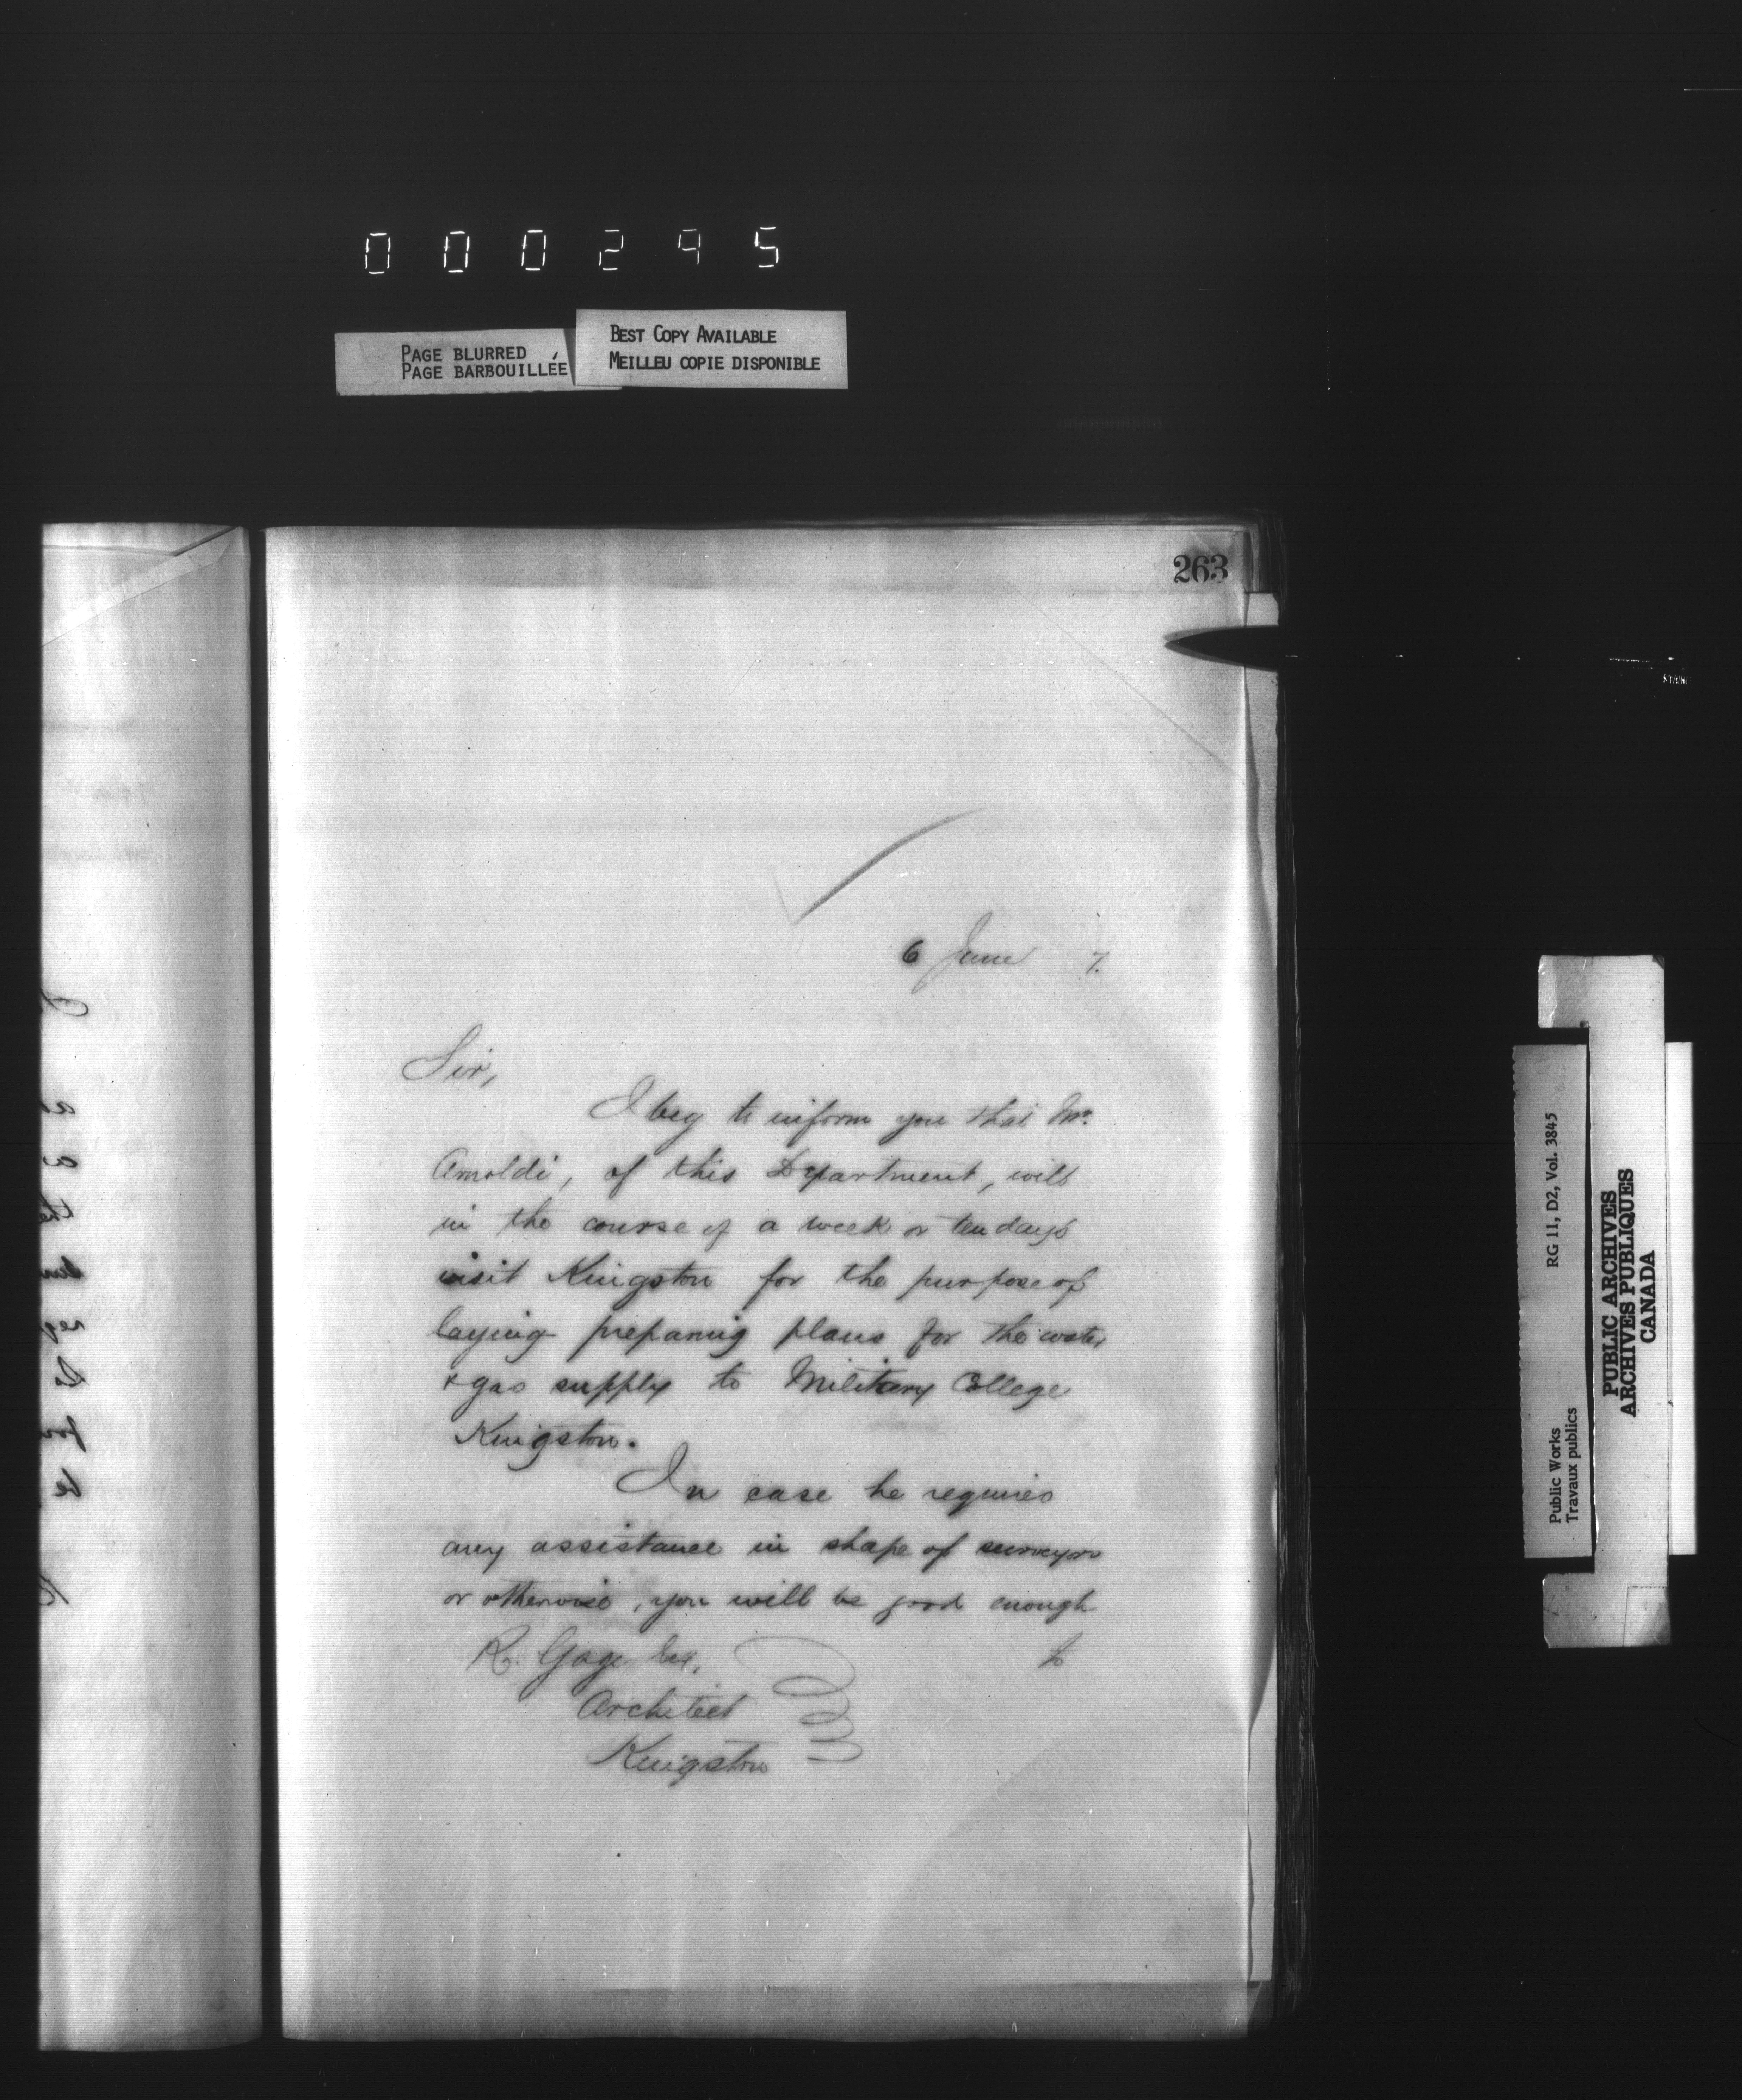 000295
PAGE BLURRED
PAGE BARBOUILLÉE
BEST COPY AVAILABLE
MEILLEU COPIE DISPONIBLE
263
6 June 7.
Sir,
I beg to inform you that Mr.
Arnoldi, of this Department, will
in the course of a week or ten days
visit Kingston for the purpose of
laying preparing plans for the water
& gas supply to Military College
Kingston.
In case he requires
any assistance in shape of surveyor
or otherwise, you will be good enough
to
R. Gage Esq,
Architect
Kingston
Public Works
Travaux publics
RG 11, D2, Vol. 3845
PUBLIC ARCHIVES
ARCHIVES PUBLIQUES
CANADA